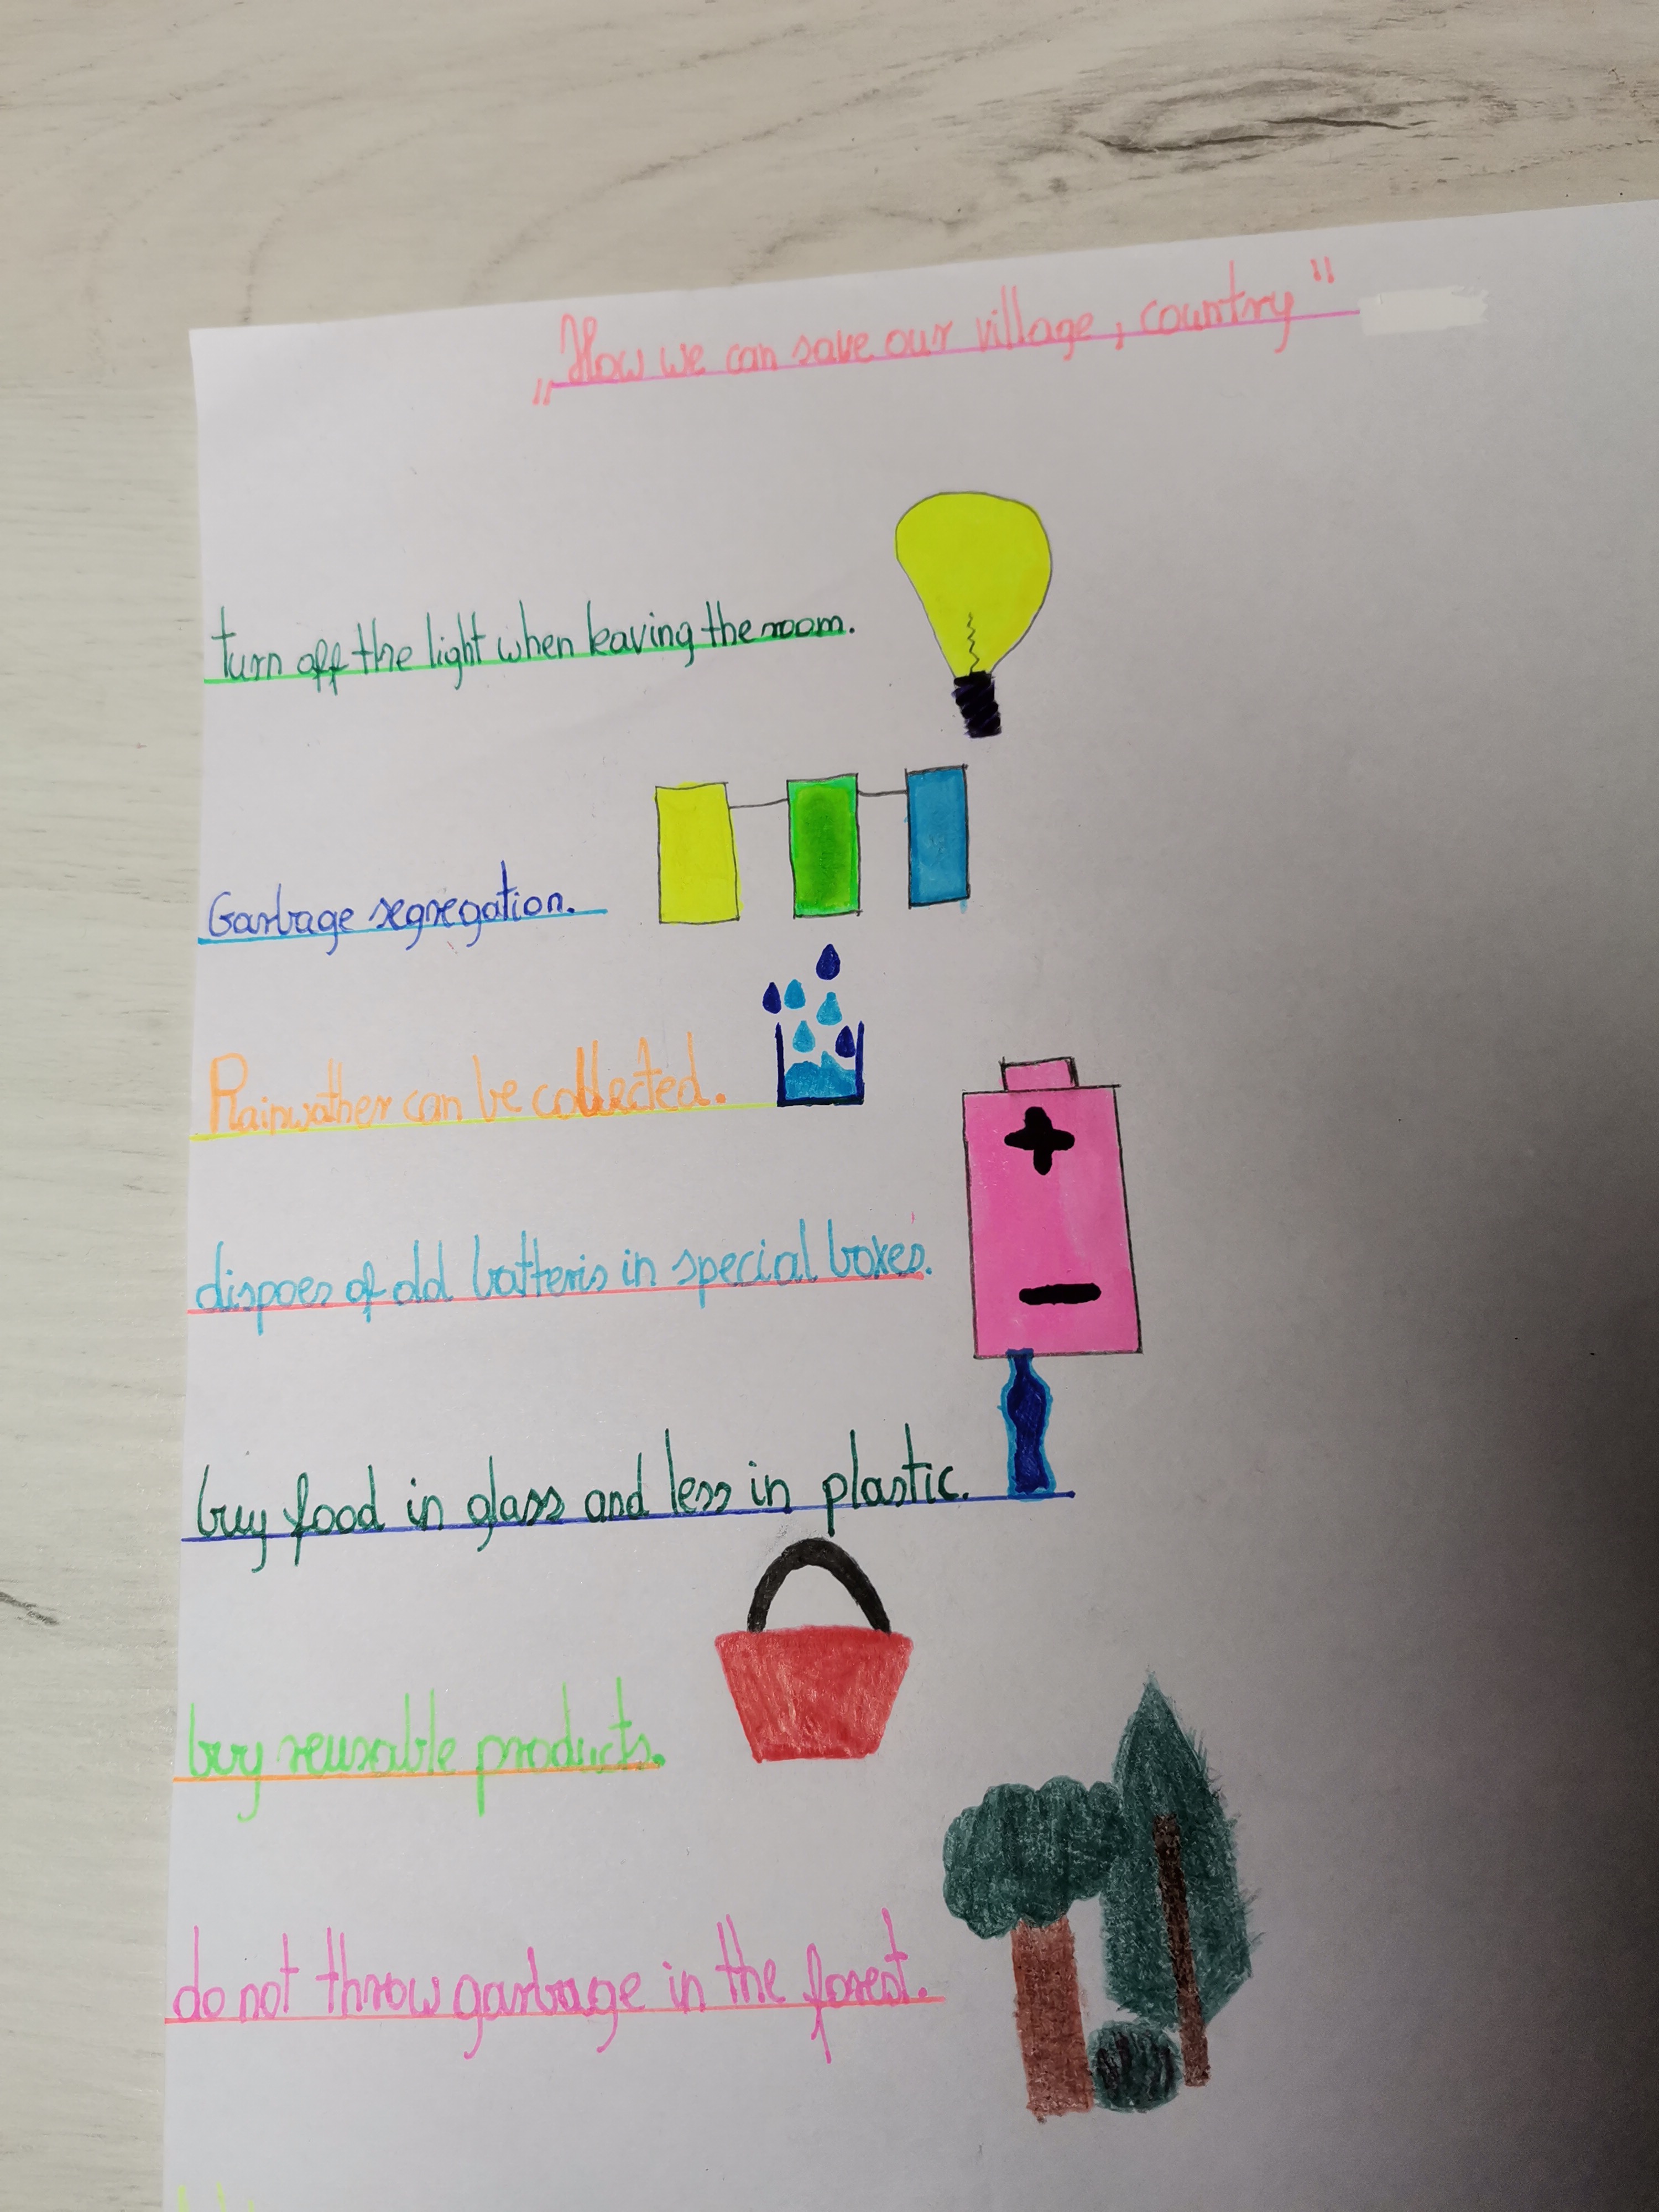 „How we can save our village, country"
turn off the light when leaving the room.
Garbage segregation.
Rainwather can be collected.
dispoes of old batteris in special boxes.
buy food in glass and less in plastic.
buy reusable products.
do not throw garbage in the forest.